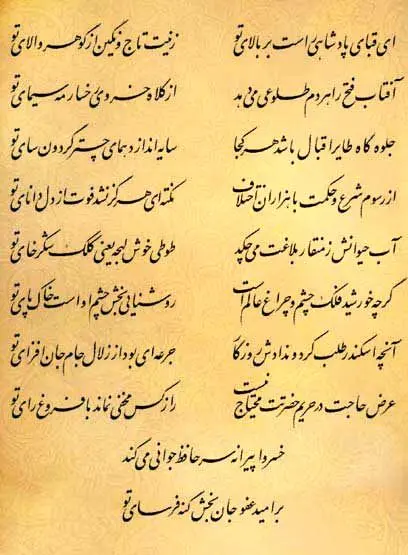 ای قبای پادشاهی راست بر بالای تو زینت تاج و نگین از گوهر والای تو
آفتاب فتح را هر دم طلوعی می‌دهد از کلاه خسروی رخسار مه سیمای تو
جلوه گاه طایر اقبال باشد هر کجا سایه اندازد همای چتر گردون سای تو
از رسوم شرع و حکمت با هزاران اختلاف نکته‌ای هرگز نشد فوت از دل دانای تو
آب حیوانش ز منقار بلاغت می‌چکد طوطی خوش لهجه یعنی کلک شکرخای تو
گرچه خورشید فلک چشم و چراغ عالم است روشنایی بخش چشم اوست خاک پای تو
آنچه اسکندر طلب کرد و ندادش روزگار جرعه‌ای بود از زلال جام جان افزای تو
عرض حاجت در حریم حضرتت محتاج نیست راز کس مخفی نماند با فروغ رای تو
خسروا پیرانه سر حافظ جوانی می‌کند
بر امید عفو جان بخش گنه فرسای تو